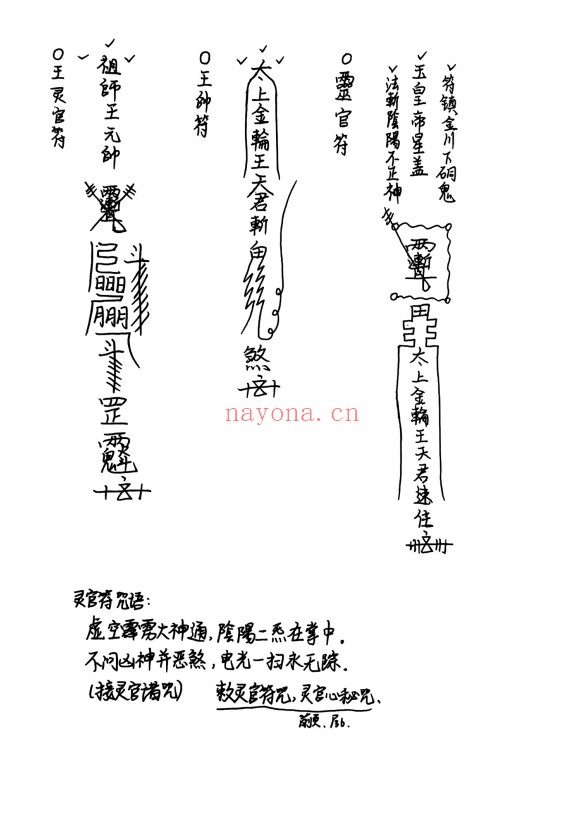 符镇金川下硐鬼
玉皇帝星盖
法斬陰陽不正神
田
太上金輪王天君速住
○靈官符
太上金輪王天君斬
煞
○王帥符
祖師王元帥
斗
斗
罡
○王灵官符
nayona.cn
灵官符咒语:
虚空霹雳大神通,陰陽二炁在掌中.
不问凶神并恶煞,电光一扫永无踪.
(接灵官诸咒) 敕灵官符咒,灵官心秘咒、